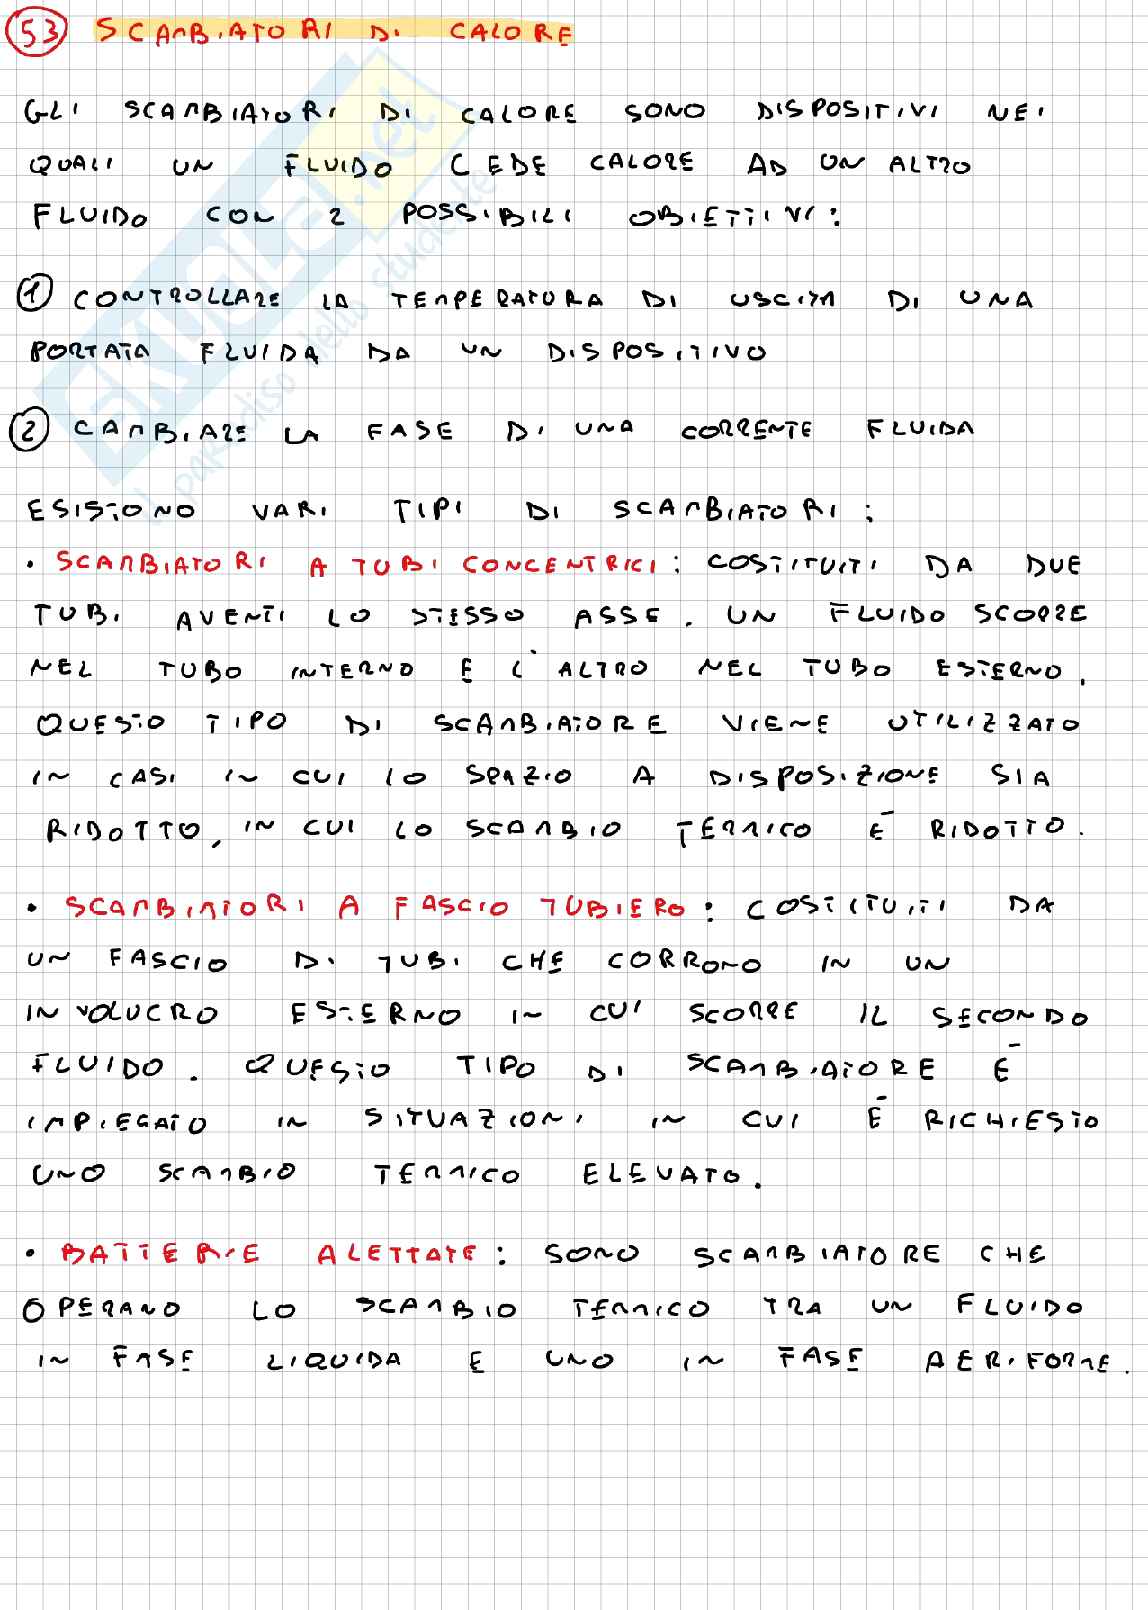 53 SCAMBIATORI DI CALORE
GLI SCAMBIATORI DI CALORE SONO DISPOSITIVI NEI
QUALI UN FLUIDO CEDE CALORE AD UN ALTRO
FLUIDO CON 2 POSSIBILI OBIETTIVI:
1 CONTROLLARE LA TEMPERATURA DI USCITA DI UNA
PORTATA FLUIDA DA UN DISPOSITIVO
2 CAMBIARE LA FASE DI UNA CORRENTE FLUIDA
ESISTONO VARI TIPI DI SCAMBIATORI:
• SCAMBIATORI A TUBI CONCENTRICI: COSTITUITI DA DUE
TUBI AVENTI LO STESSO ASSE. UN FLUIDO SCORRE
NEL TUBO INTERNO E L'ALTRO NEL TUBO ESTERNO.
QUESTO TIPO DI SCAMBIATORE VIENE UTILIZZATO
IN CASI IN CUI LO SPAZIO A DISPOSIZIONE SIA
RIDOTTO, IN CUI LO SCAMBIO TERMICO È RIDOTTO.
• SCAMBIATORI A FASCIO TUBIERO: COSTITUITI DA
UN FASCIO DI TUBI CHE CORRONO IN UN
INVOLUCRO ESTERNO IN CUI SCORRE IL SECONDO
FLUIDO. QUESTO TIPO DI SCAMBIATORE È
IMPIEGATO IN SITUAZIONI IN CUI È RICHIESTO
UNO SCAMBIO TERMICO ELEVATO.
• BATTERIE ALETTATE: SONO SCAMBIATORE CHE
OPERANO LO SCAMBIO TERMICO TRA UN FLUIDO
IN FASE LIQUIDA E UNO IN FASE AERIFORME.
SKUOLA.net
il paradiso dello studente